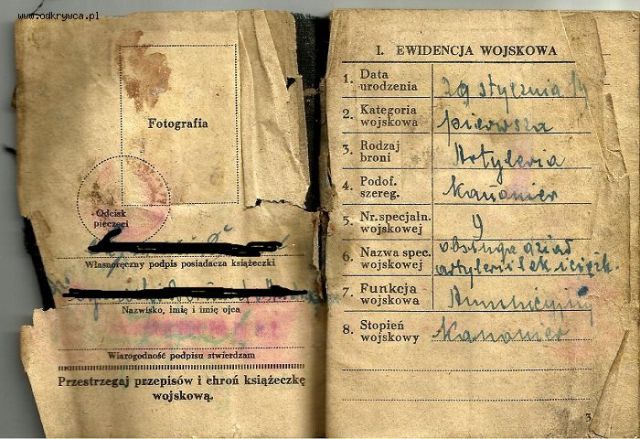 www.odkrywca.pl
Fotografia
Odcisk
pieczęci
Własnoręczny podpis posiadacza książeczki
Nazwisko, imię i imię ojca
Wiarogodność podpisu stwierdzam
Przestrzegaj przepisów i chroń książeczkę
wojskową.
I. EWIDENCJA WOJSKOWA
1. Data urodzenia 29 stycznia
2. Kategoria wojskowa pierwsza
3. Rodzaj broni Artyleria
4. Podof. szereg. Kanonier
5. Nr. specjaln. wojskowej 9
6. Nazwa spec. wojskowej obsługa dział
artylerii lek i ciężk.
7. Funkcja wojskowa Amunicyjny
8. Stopień wojskowy Kanonier
3